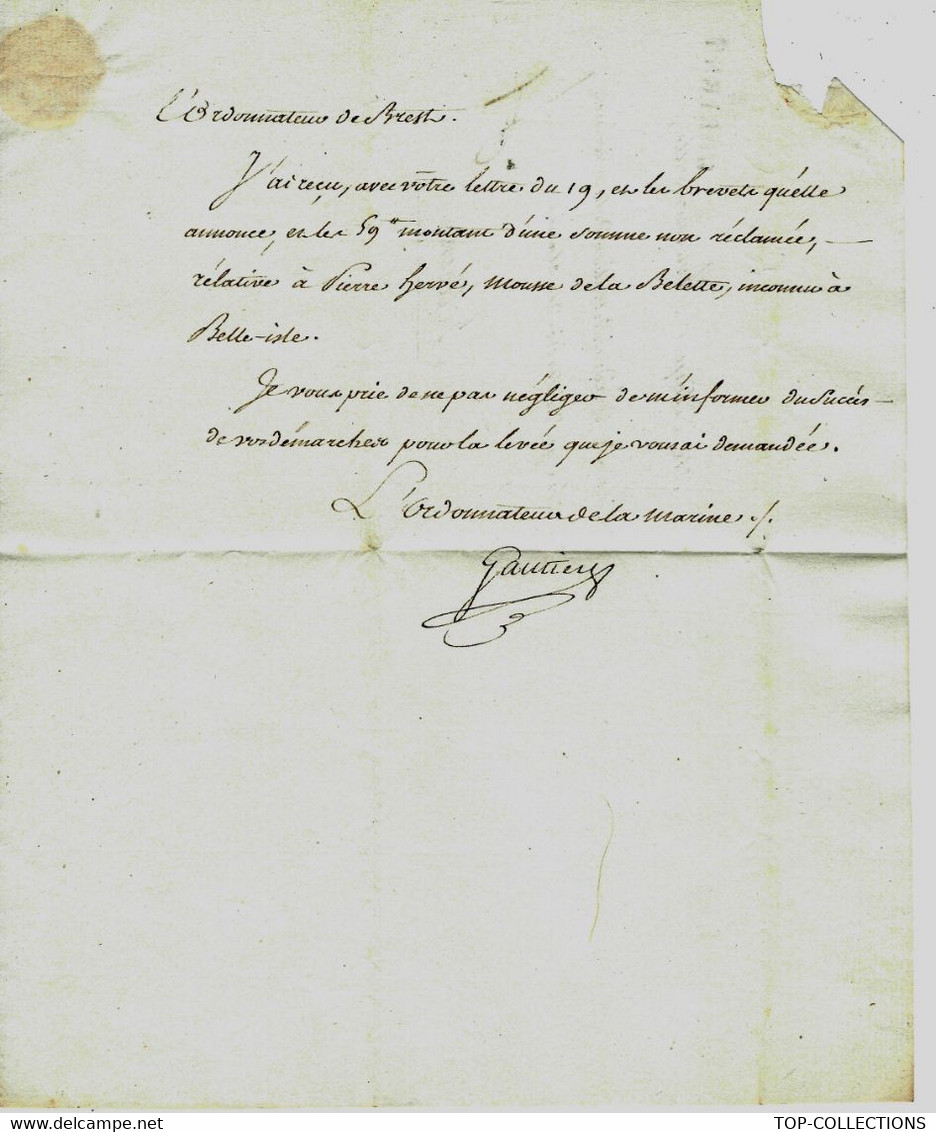 L'Ordonnateur de Brest.
J'ai reçu, avec vôtre lettre du 19, et les brevets qu'elle
annonce, et les 59# montant d'une somme non réclamée,
rélative à Pierre Hervé, mousse de la Belette, inconnu à
Belle-isle.
Je vous prie de ne pas négliger de m'informer du succès
de vos démarches pour la levée que je vous ai demandée.
L'Ordonnateur de la marine /.
Gautier
TOP-COLLECTIONS